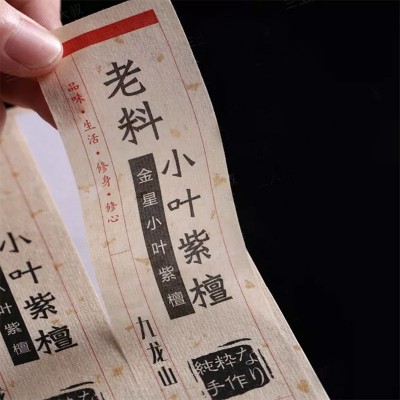 老料
小叶紫檀
金星小叶紫檀
品味·生活·修身·修心
九龙山
純粋な
手作り
小叶紫檀
小叶紫檀